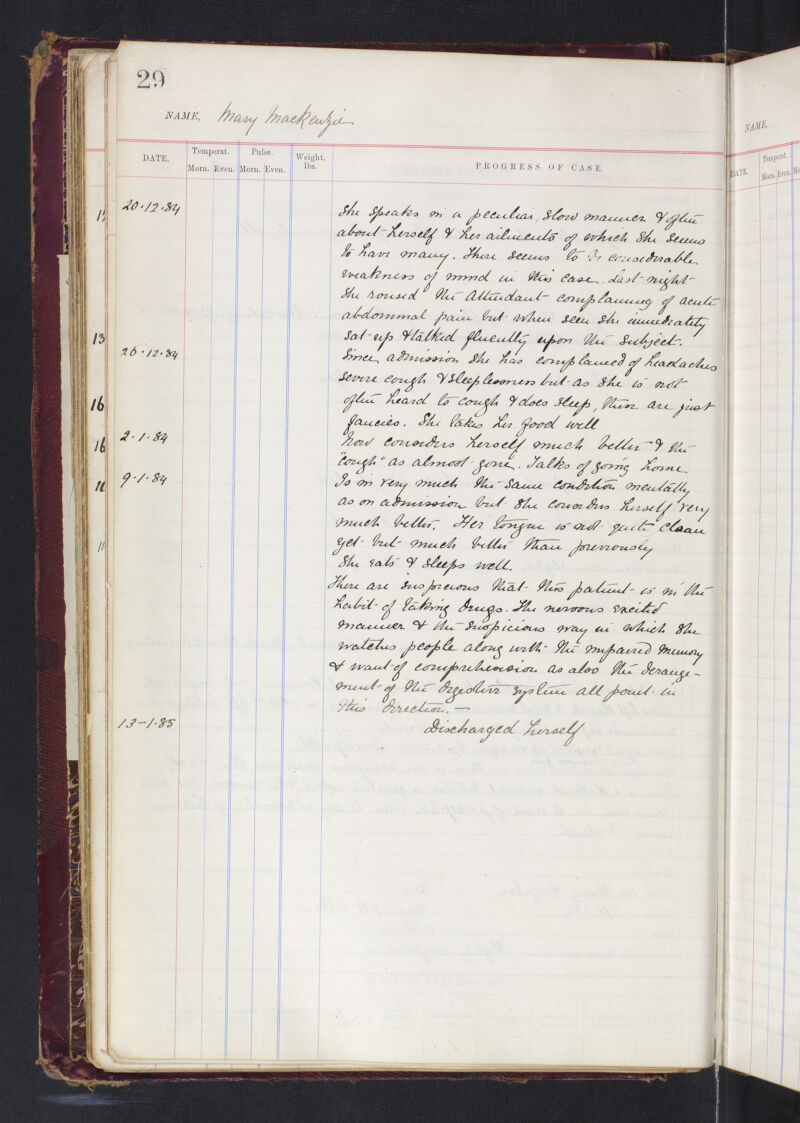 29
NAME, Mary Mackenzie
NAME,
DATE. Temperat. Pulse. Weight, lbs. PROGRESS OF CASE
Morn. Even. Morn. Even.
DATE. Temperat.
Morn. Even. Mo
20.12.84 She speaks in a peculiar slow manner & often
about herself & her ailments of which she seems
to have many. There seems to be considerable
weakness of mind in this case. Last night
she roused the Attendant complaining of acute
abdominal pain but when seen she immediately
13 sat up & talked fluently upon the subject.
26.12.84 Since admission she has complained of headaches
severe cough & sleeplessness but as she is not
16 often heard to cough & does sleep, these are just
fancies. She takes her food well
16 2.1.84 Now considers herself much better & the
"cough" as almost gone. Talks of going home
9.1.84 Is in very much the same condition mentally
as on admission but she considers herself very
much better. Her tongue is not quite clean
11 yet but much better than previously
She eats & sleeps well.
There are suspicions that this patient is in the
habit of taking drugs. The nervous excited
manner & the suspicious way in which she
watches people along with the impaired memory
& want of comprehension as also the derange-
ment of the digestive system all point in
this direction. —
13-1.85 Discharged herself